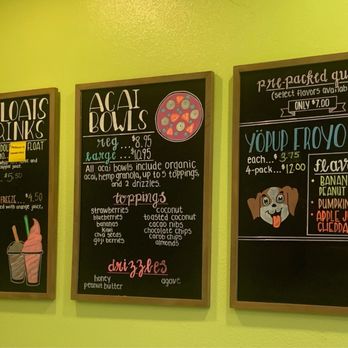 LOATS
INKS
FLOAT
$5.50
FREEZE.....$4.50
ed with orange juice.
ACAI
BOWLS
reg. ... $8.95
large...$10.95
All acai bowls include organic
acai, hemp granola, up to 5 toppings,
and 2 drizzles.
toppings
strawberries
blueberries
bananas
kiwi
chia seeds
goji berries
coconut
toasted coconut
cacao nibs
chocolate chips
carob chips
almonds
drizzles
honey
peanut butter
agave
pre-packed qu
(select flavors availab
ONLY $7.00
YÖPUP FROYO
each... $3.75
4-pack...$12.00
flav
• BANAN
PEANUT
• PUMPKIN
• APPLE JU
CHEDDA